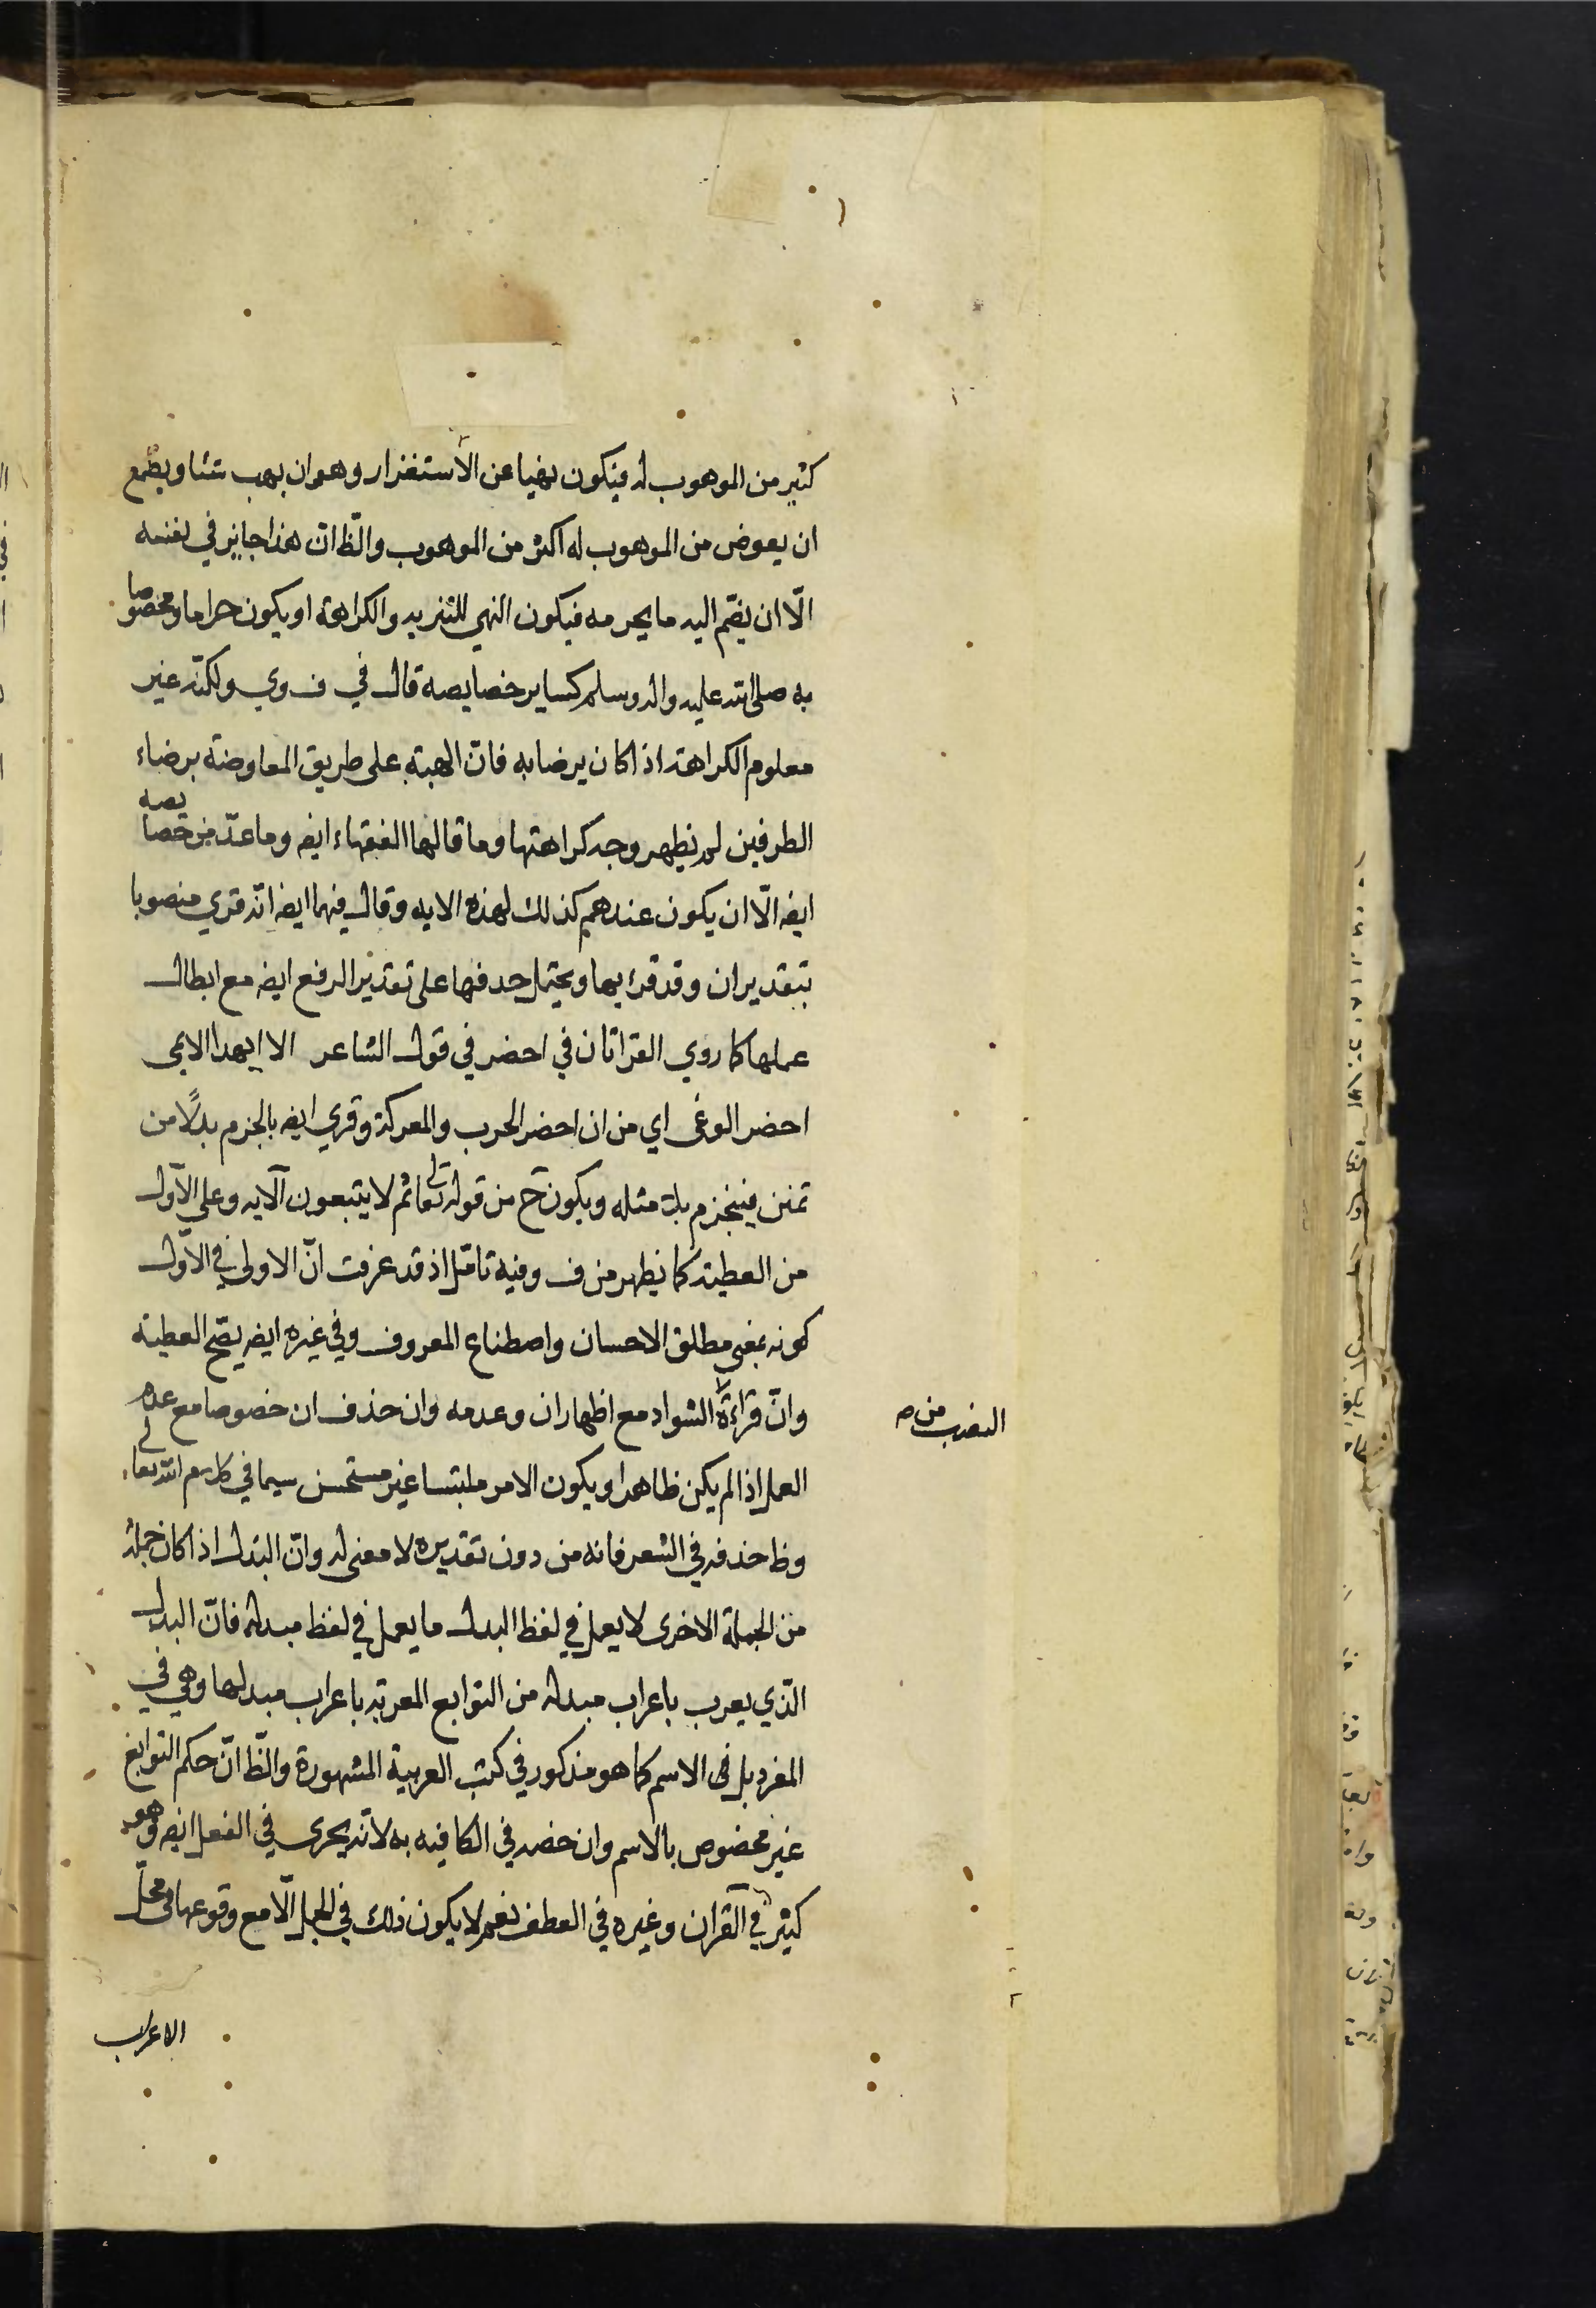 كثير من الموهوب له فيكون نهيا عن الاستغزار وهو ان يهب شئا ويطمع
ان يعوض من الموهوب له اكثر من الموهوب والظ ان هذا جايز في نفسه
الّا ان يضّم اليه ما يحرمه فيكون النهي للتنزيه والكراهة او يكون حراما ومخصوصا
به صلى الله عليه واله وسلم كساير خصايصه قال في ف وي ولكنّه غير
معلوم الكراهة اذا كان يرضا به فانّ الهبة على طريق المعاوضة برضاء
الطرفين لم يظهر وجه كراهتها وما قالها الفقهاء ايضه وما عدّ من خصايصه
ايضه الّا ان يكون عندهم كذلك لهذه الايه وقال فيهما ايضه انّه قري منصوبا
بتقدير ان وقد قرء بها ويحتمل حدفها على تقدير الرفع ايضه مع ابطال
عملها كما روي القراتان في احضر في قول الشاعر الا ايهدا الايمى
احضر الوغى اي من ان احضر الحرب والمعركة وقري ايضه بالجزم بدلًا من
تمنن فينجزم بلا مثله ويكون ح من قوله تعالى ثم لا يتبعون آلايه وعلى الاول
من العطية كما يظهر من ف وفيه تامّل اذ قد عرفت انّ الاولى في الاوّل
كونه بمعنى مطلق الاحسان واصطناع المعروف وفي غيره ايضه يصّح العطية
وانّ قراءة الشواد مع اظهار ان وعدمه وان حذف ان خصوصا مع عدم
النصب من ص
العمل اذا لم يكن ظاهرا ويكون الامر ملبتسا غير مستحسن سيما في كلام الله تعالى
وظ حذفه في الشعر فانه من دون تقديره لا معنى له وانّ البدل اذا كان جملة
من الجملة الاخرى لا يعمل في لفظ البدل ما يعمل في لفظ مبدله فانّ البدل
الذّي يعرب باعراب مبدله من التوابع المعربة باعراب مبدلها وهي في
المفرد بل في الاسم كما هو مذكور في كتب العربية المشهورة والظّ انّ حكم التوابع
غير مخصوص بالاسم وان خصه في الكافيه به لانّه يجرى في الفعل ايضه وهو
كثير في القران وغيره في العطف نعم لا يكون ذلك في الجمل الّا مع وقوعها في محلّ
الاعراب